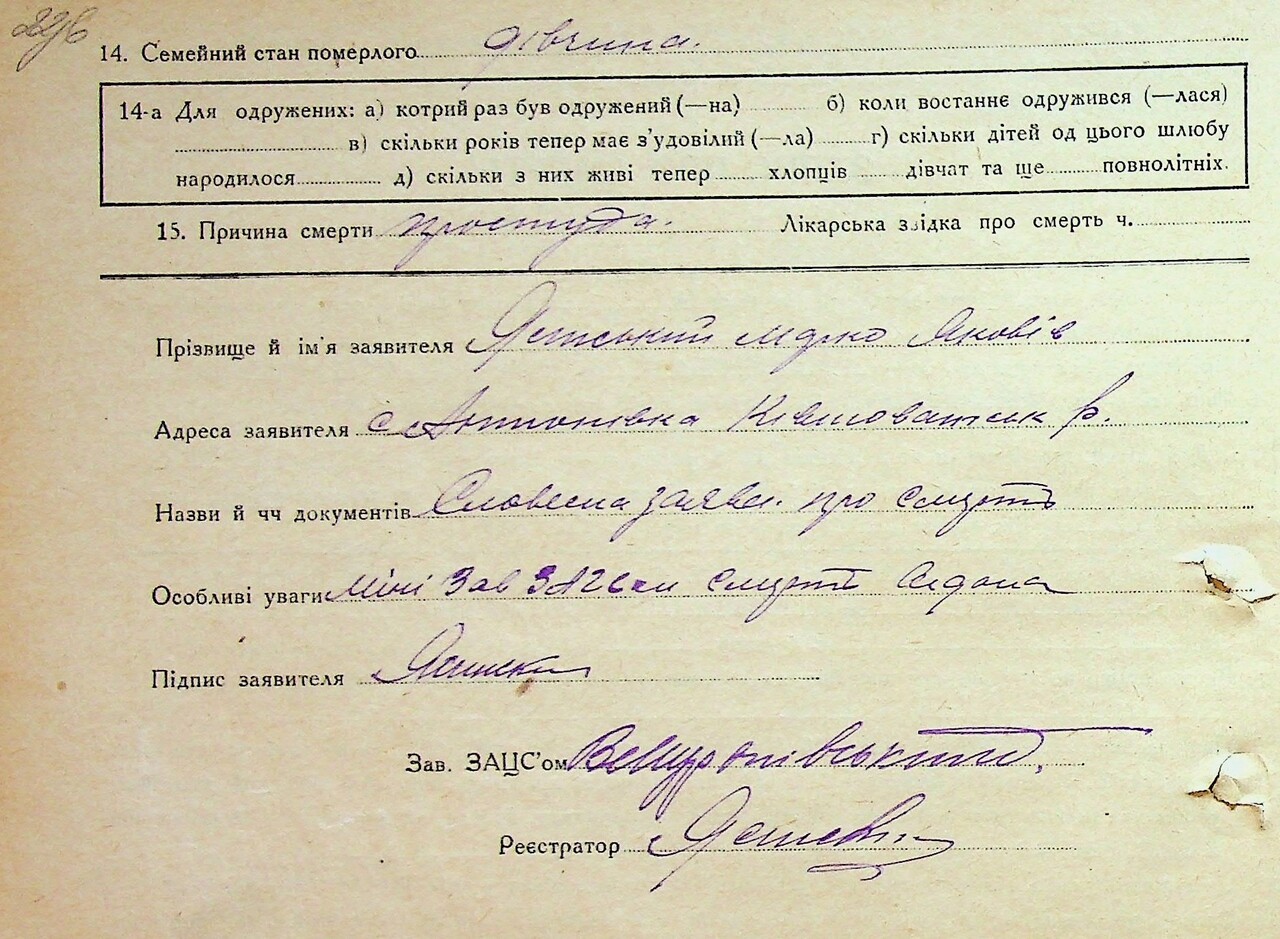 14. Семейний стан померлого дівчина.
14-а Для одружених: а) котрий раз був одружений (—на) б) коли востаннє одружився (—лася)
в) скільки років тепер має з'удовілий (—ла) г) скільки дітей од цього шлюбу
народилося д) скільки з них живі тепер хлопців дівчат та ще повнолітніх.
15. Причина смерти простуда. Лікарська звідка про смерть ч.
Прізвище й ім'я заявителя Марко Яковів
Адреса заявителя с Антонівка Ківшоватськ р.
Назви й чч документів Словесна заява про смерть
Особливі уваги
Підпис заявителя
Зав. ЗАЦС'ом
Реєстратор